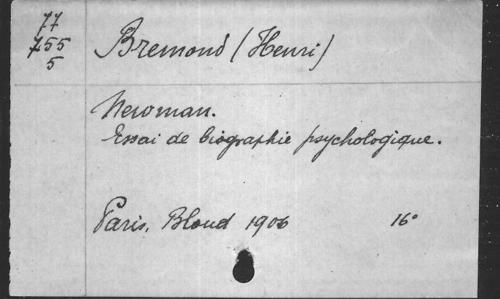 77
755
5
Bremond (Henri)
Newman.
Essai de biographie psychologique.
Paris, Bloud 1906 16°